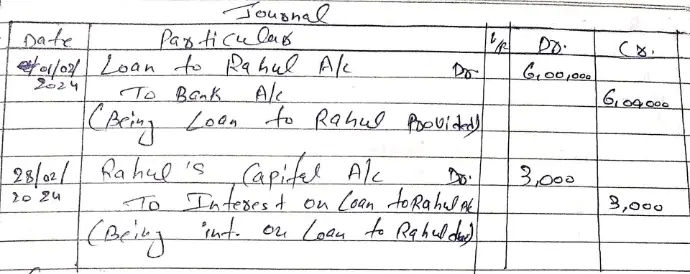 Journal
Date Particulars L/F Dr. Cr.
01/02/2024 Loan to Rahul A/c Dr 6,00,000
To Bank A/c 6,00,000
(Being Loan to Rahul Provided)
28/02/2024 Rahul's Capital A/c Dr. 3,000
To Interest on Loan to Rahul A/c 3,000
(Being int. on Loan to Rahul due)